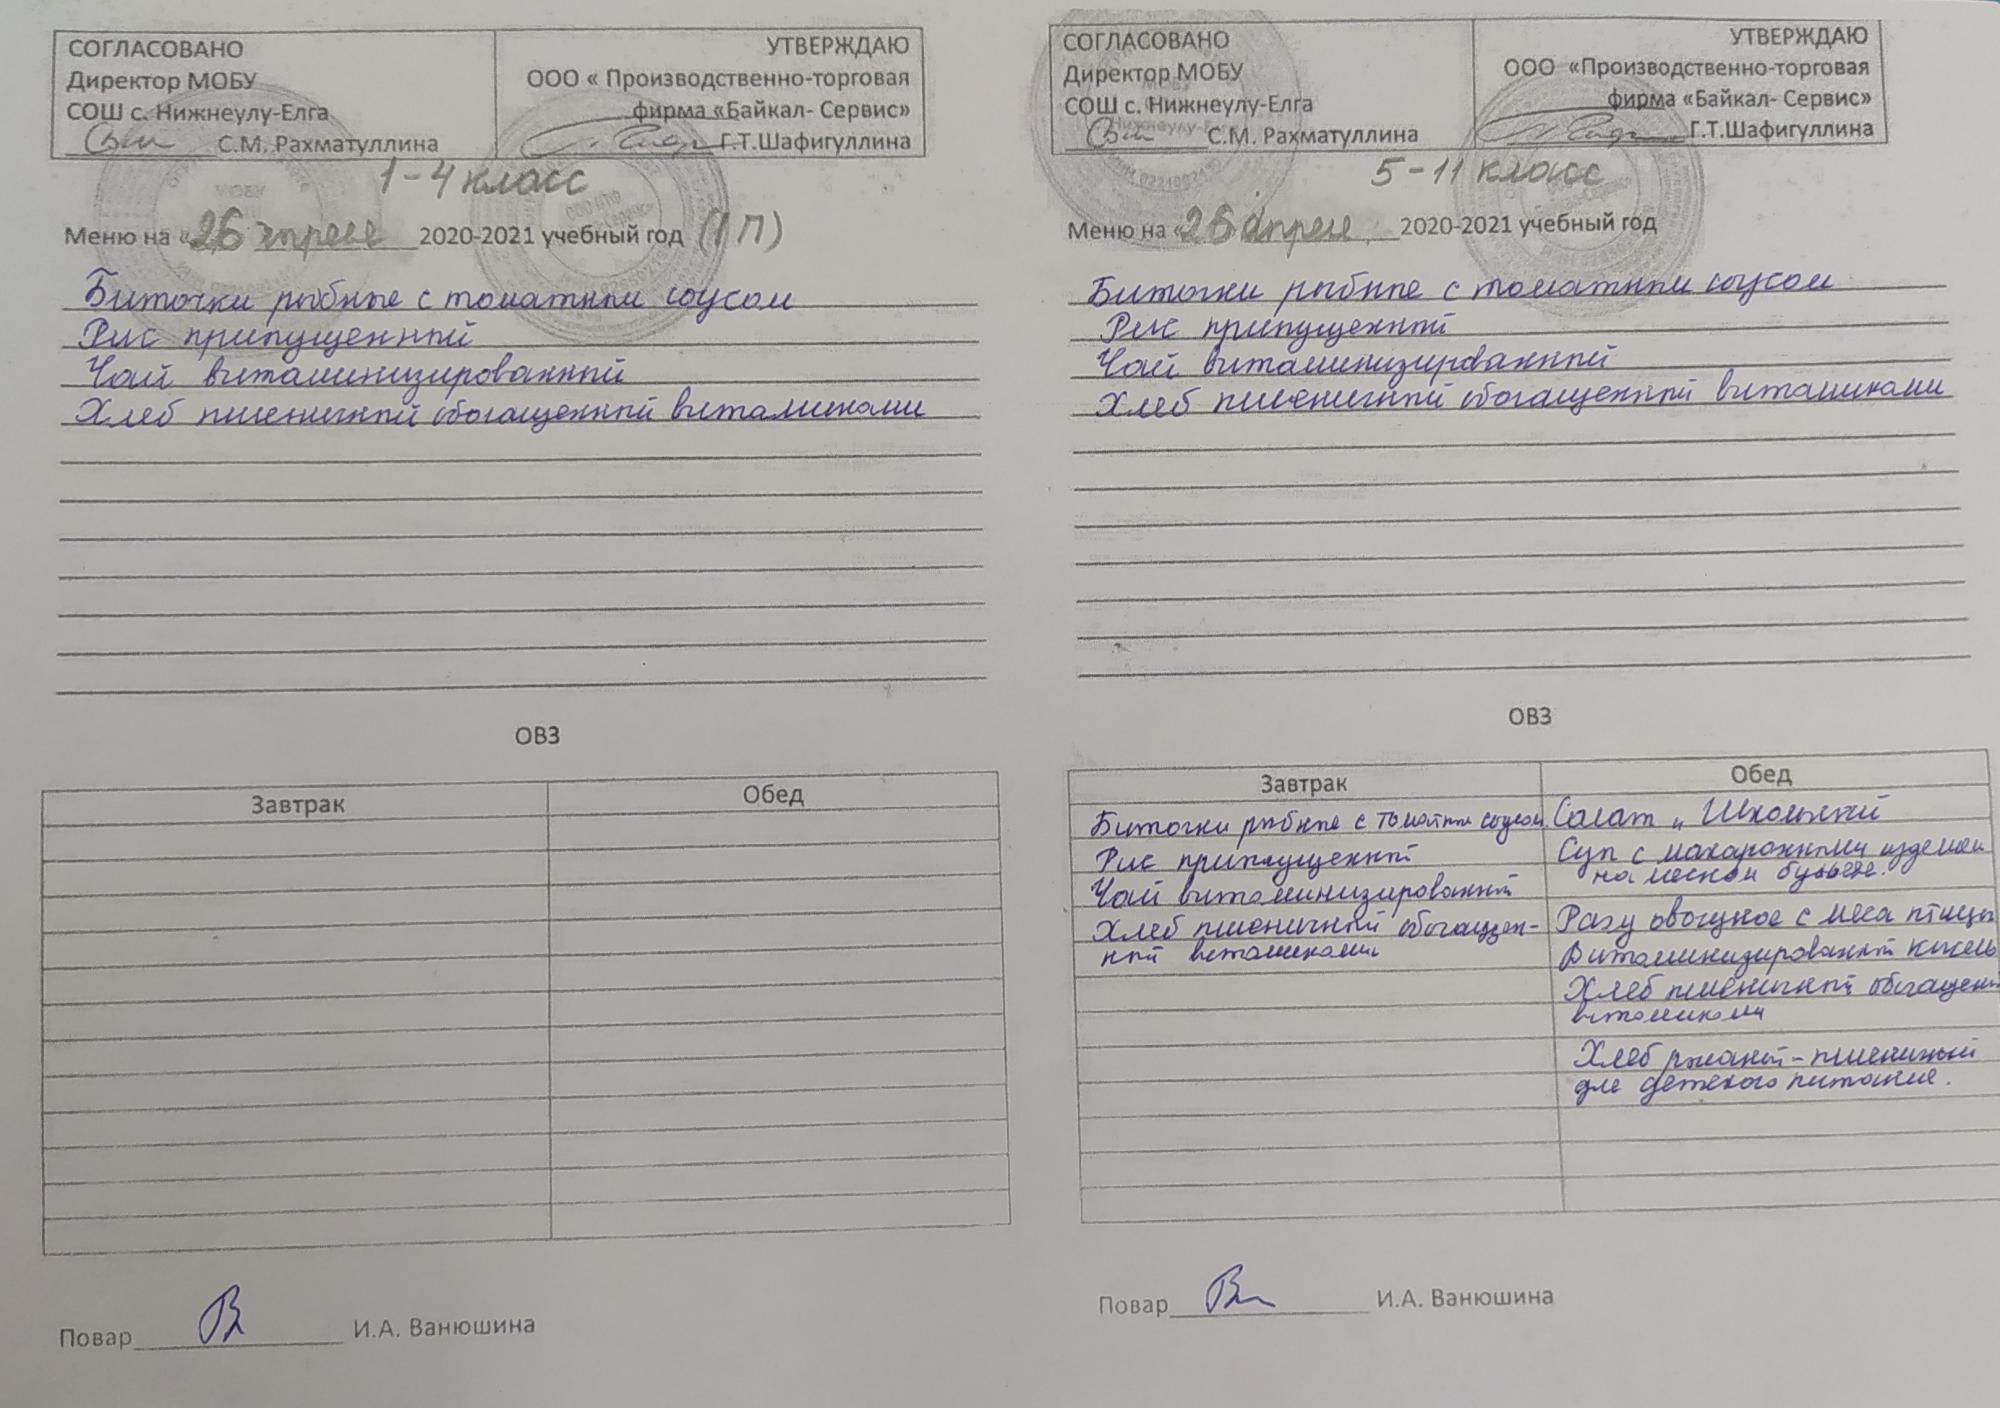 СОГЛАСОВАНО
Директор МОБУ
СОШ с. Нижнеулу-Елга
С.М. Рахматуллина
УТВЕРЖДАЮ
ООО « Производственно-торговая
фирма «Байкал- Сервис»
Г.Т.Шафигуллина
1-4 класс
Меню на «26 апреля 2020-2021 учебный год (1 П)
Биточки рыбные с томатным соусом
Рис припущенный
Чай витаминизированный
Хлеб пшеничный обогащенный витаминами
ОВЗ
Завтрак Обед
Повар И.А. Ванюшина
СОГЛАСОВАНО
Директор МОБУ
СОШ с. Нижнеулу-Елга
С.М. Рахматуллина
УТВЕРЖДАЮ
ООО «Производственно-торговая
фирма «Байкал- Сервис»
Г.Т.Шафигуллина
5-11 класс
Меню на «26 апреля 2020-2021 учебный год
Биточки рыбные с томатным соусом
Рис припущенный
Чай витаминизированный
Хлеб пшеничный обогащенный витаминами
ОВЗ
Завтрак
Биточки рыбные с томатным соусом
Рис припущенный
Чай витаминизированный
Хлеб пшеничный обогащен-
ный витаминами
Обед
Салат „ Школьный
Суп с макаронными изделиями
на мясном бульоне.
Рагу овощное с мяса птицы
Витаминизированный кисель
Хлеб пшеничный обогащенный
витаминами
Хлеб ржаной-пшеничный
для детского питания.
Повар И.А. Ванюшина